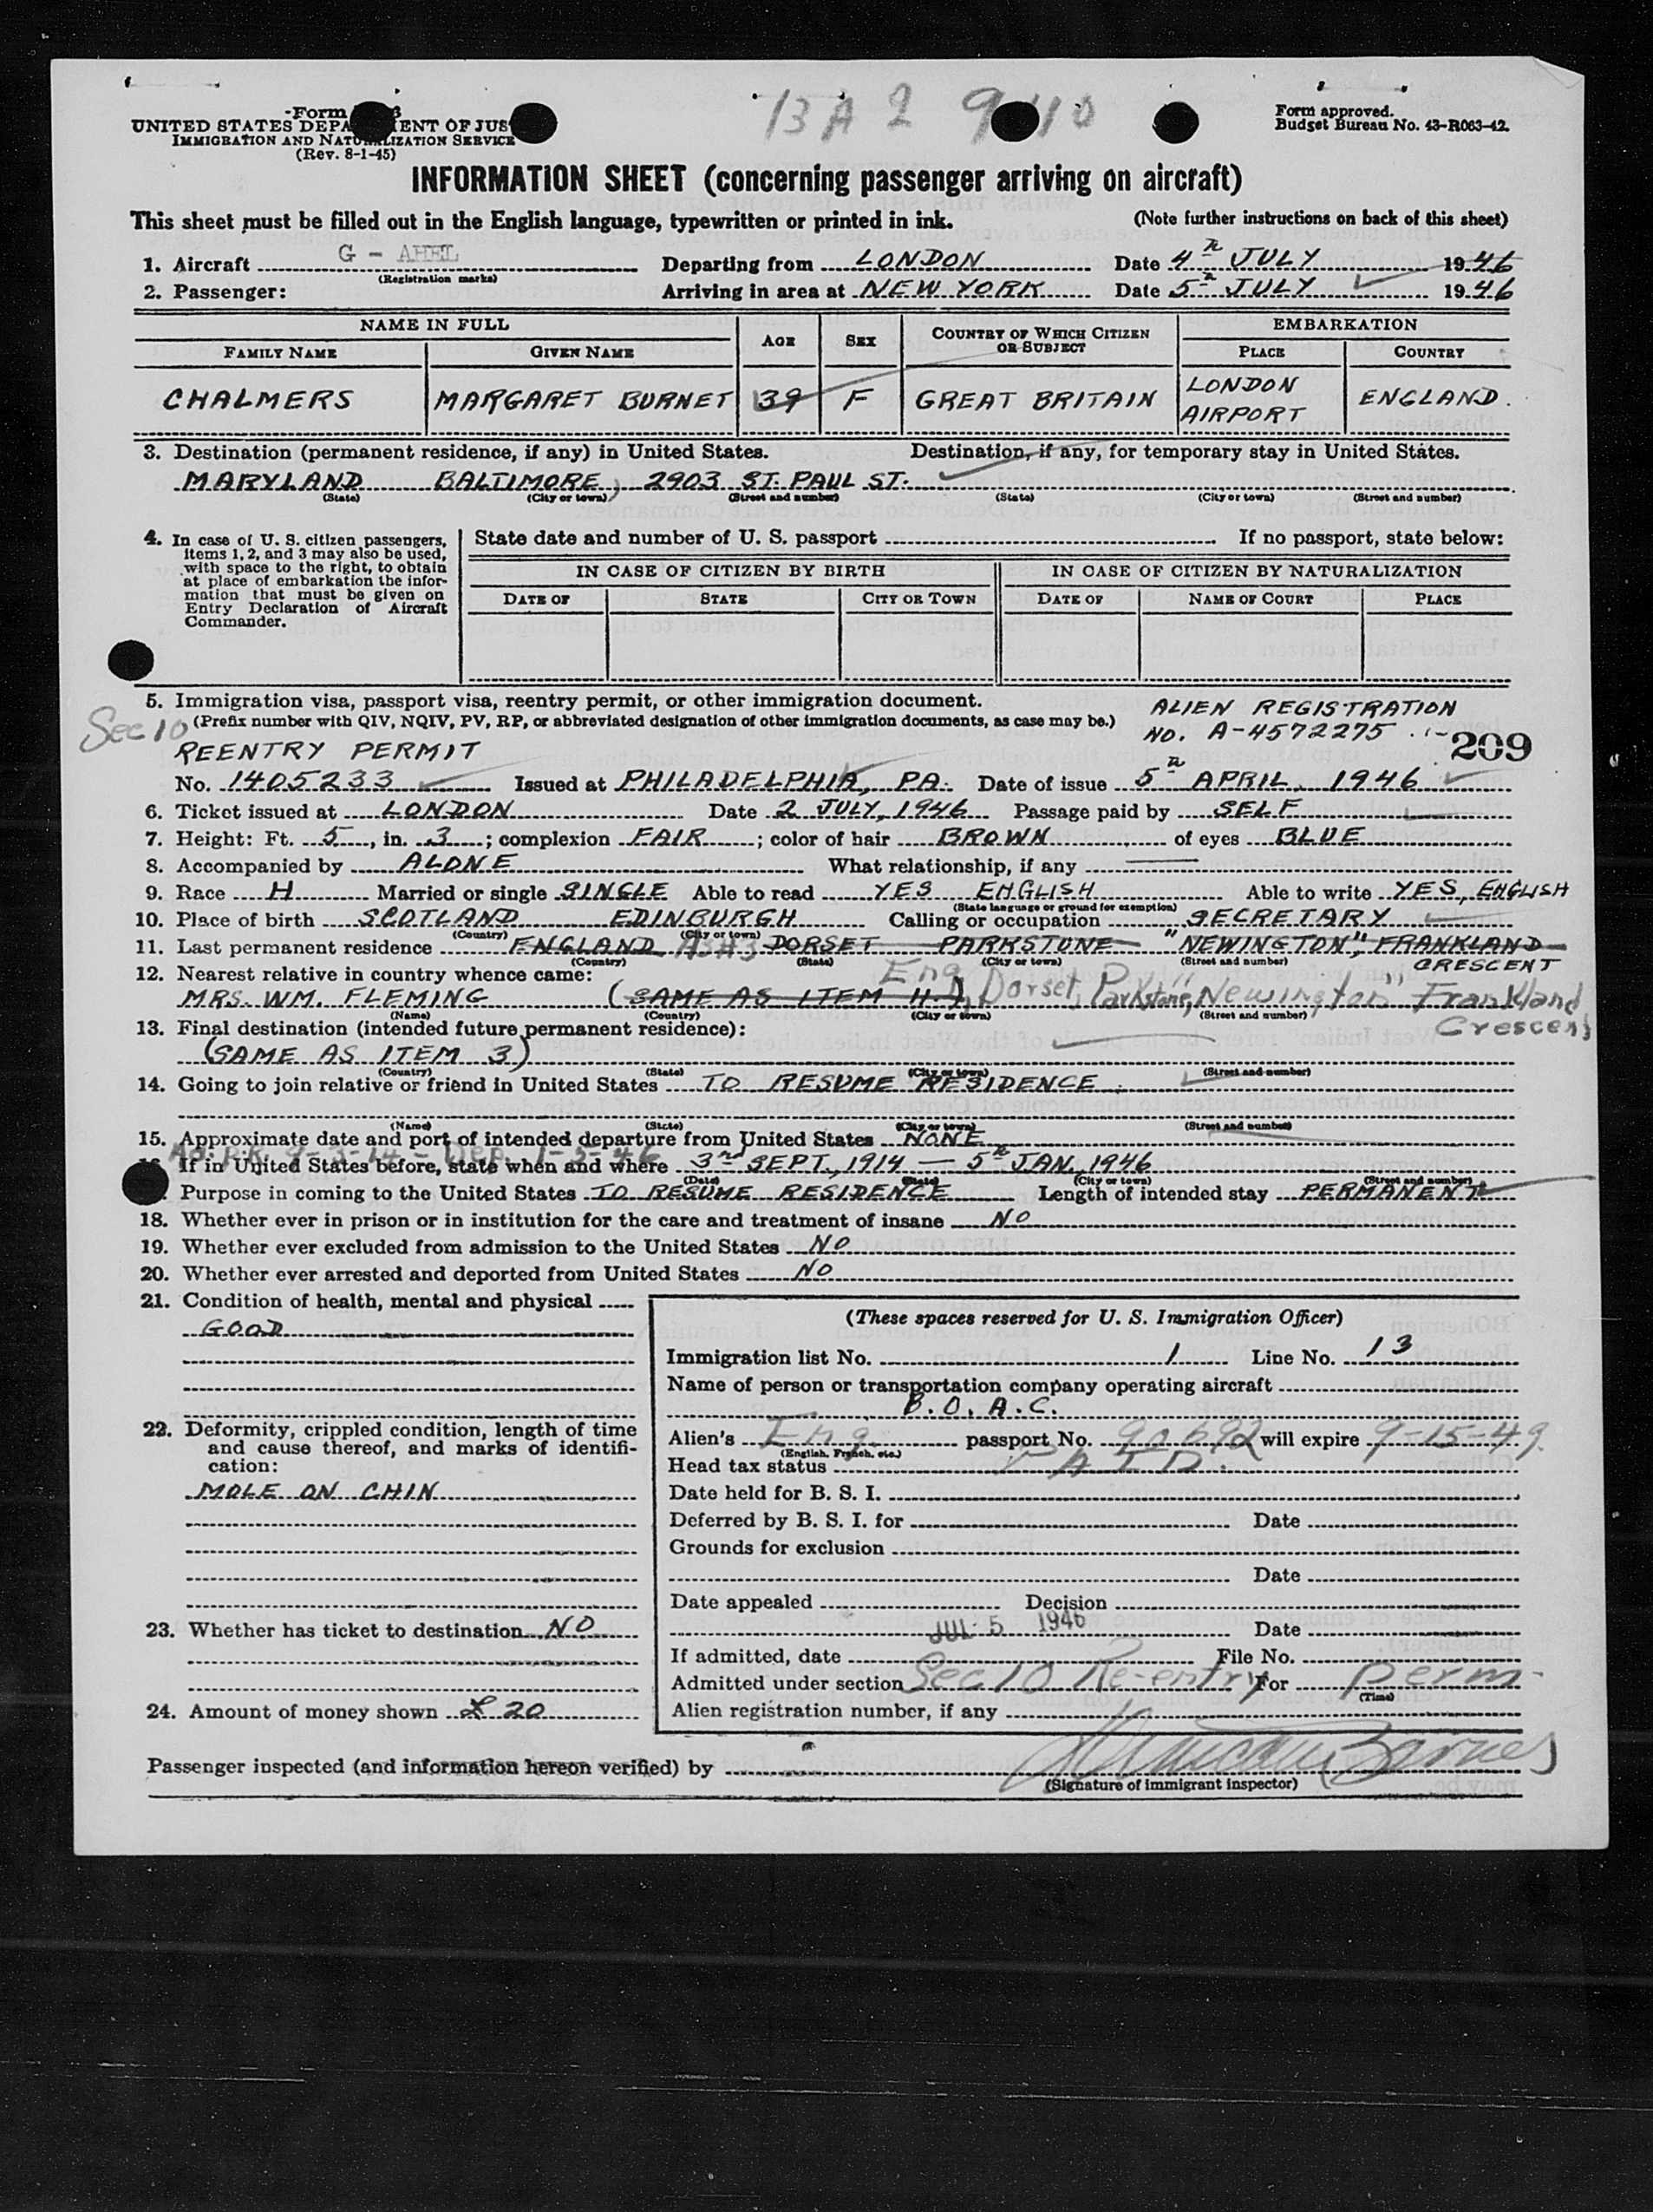 13 A 2 9 10
Form
UNITED STATES DEPARTMENT OF JUS
IMMIGRATION AND NATURALIZATION SERVICE
(Rev. 8-1-45)
Form approved.
Budget Bureau No. 43-R063-42.
INFORMATION SHEET (concerning passenger arriving on aircraft)
This sheet must be filled out in the English language, typewritten or printed in ink. (Note further instructions on back of this sheet)
1. Aircraft G - AHEL Departing from LONDON Date 4th JULY 1946
(Registration marks)
2. Passenger: Arriving in area at NEW YORK Date 5th JULY 1946
NAME IN FULL AGE SEX COUNTRY OF WHICH CITIZEN OR SUBJECT EMBARKATION
FAMILY NAME GIVEN NAME PLACE COUNTRY
CHALMERS MARGARET BURNET 39 F GREAT BRITAIN LONDON AIRPORT ENGLAND.
3. Destination (permanent residence, if any) in United States. Destination, if any, for temporary stay in United States.
MARYLAND BALTIMORE, 2903 ST. PAUL ST.
(State) (City or town) (Street and number) (State) (City or town) (Street and number)
4. In case of U. S. citizen passengers, items 1, 2, and 3 may also be used, with space to the right, to obtain at place of embarkation the information that must be given on Entry Declaration of Aircraft Commander.
State date and number of U. S. passport If no passport, state below:
IN CASE OF CITIZEN BY BIRTH IN CASE OF CITIZEN BY NATURALIZATION
DATE OF STATE CITY OR TOWN DATE OF NAME OF COURT PLACE
5. Immigration visa, passport visa, reentry permit, or other immigration document.
Sec 10 (Prefix number with QIV, NQIV, PV, RP, or abbreviated designation of other immigration documents, as case may be.)
ALIEN REGISTRATION
NO. A-4572275
209
REENTRY PERMIT
No. 1405233 Issued at PHILADELPHIA, PA. Date of issue 5th APRIL, 1946
6. Ticket issued at LONDON Date 2 JULY, 1946 Passage paid by SELF
7. Height: Ft. 5, in. 3; complexion FAIR; color of hair BROWN of eyes BLUE
8. Accompanied by ALONE What relationship, if any
9. Race H Married or single SINGLE Able to read YES ENGLISH Able to write YES, ENGLISH
(State language or ground for exemption)
10. Place of birth SCOTLAND EDINBURGH Calling or occupation SECRETARY
(Country) (City or town)
11. Last permanent residence ENGLAND DORSET PARKSTONE "NEWINGTON", FRANKLAND
CRESCENT
(Country) (State) (City or town) (Street and number)
12. Nearest relative in country whence came:
MRS. WM. FLEMING (SAME AS ITEM 11.) Eng, Dorset, Parkstone, "Newington" Frankland
Crescent
(Name) (Country) (City or town) (Street and number)
13. Final destination (intended future permanent residence):
(SAME AS ITEM 3)
(Country) (State) (City or town) (Street and number)
14. Going to join relative or friend in United States TO RESUME RESIDENCE
(Name) (State) (City or town) (Street and number)
15. Approximate date and port of intended departure from United States NONE
P.R. 9-3-14 - Dep. 1-5-46
If in United States before, state when and where 3rd SEPT., 1914 — 5th JAN., 1946
(Date) (State) (City or town) (Street and number)
Purpose in coming to the United States TO RESUME RESIDENCE Length of intended stay PERMANENT
18. Whether ever in prison or in institution for the care and treatment of insane NO
19. Whether ever excluded from admission to the United States NO
20. Whether ever arrested and deported from United States NO
21. Condition of health, mental and physical
GOOD
22. Deformity, crippled condition, length of time and cause thereof, and marks of identification:
MOLE ON CHIN
23. Whether has ticket to destination NO
24. Amount of money shown £ 20
(These spaces reserved for U. S. Immigration Officer)
Immigration list No. 1 Line No. 13
Name of person or transportation company operating aircraft
B.O.A.C.
Alien's Eng. passport No. 90692 will expire 9-15-49
(English, French, etc.)
Head tax status PAID.
Date held for B. S. I.
Deferred by B. S. I. for Date
Grounds for exclusion
Date
Date appealed Decision
JUL 5 1946 Date
If admitted, date File No.
Admitted under section Sec 10 Re-entry For perm
(Time)
Alien registration number, if any
Passenger inspected (and information hereon verified) by Barnes
(Signature of immigrant inspector)